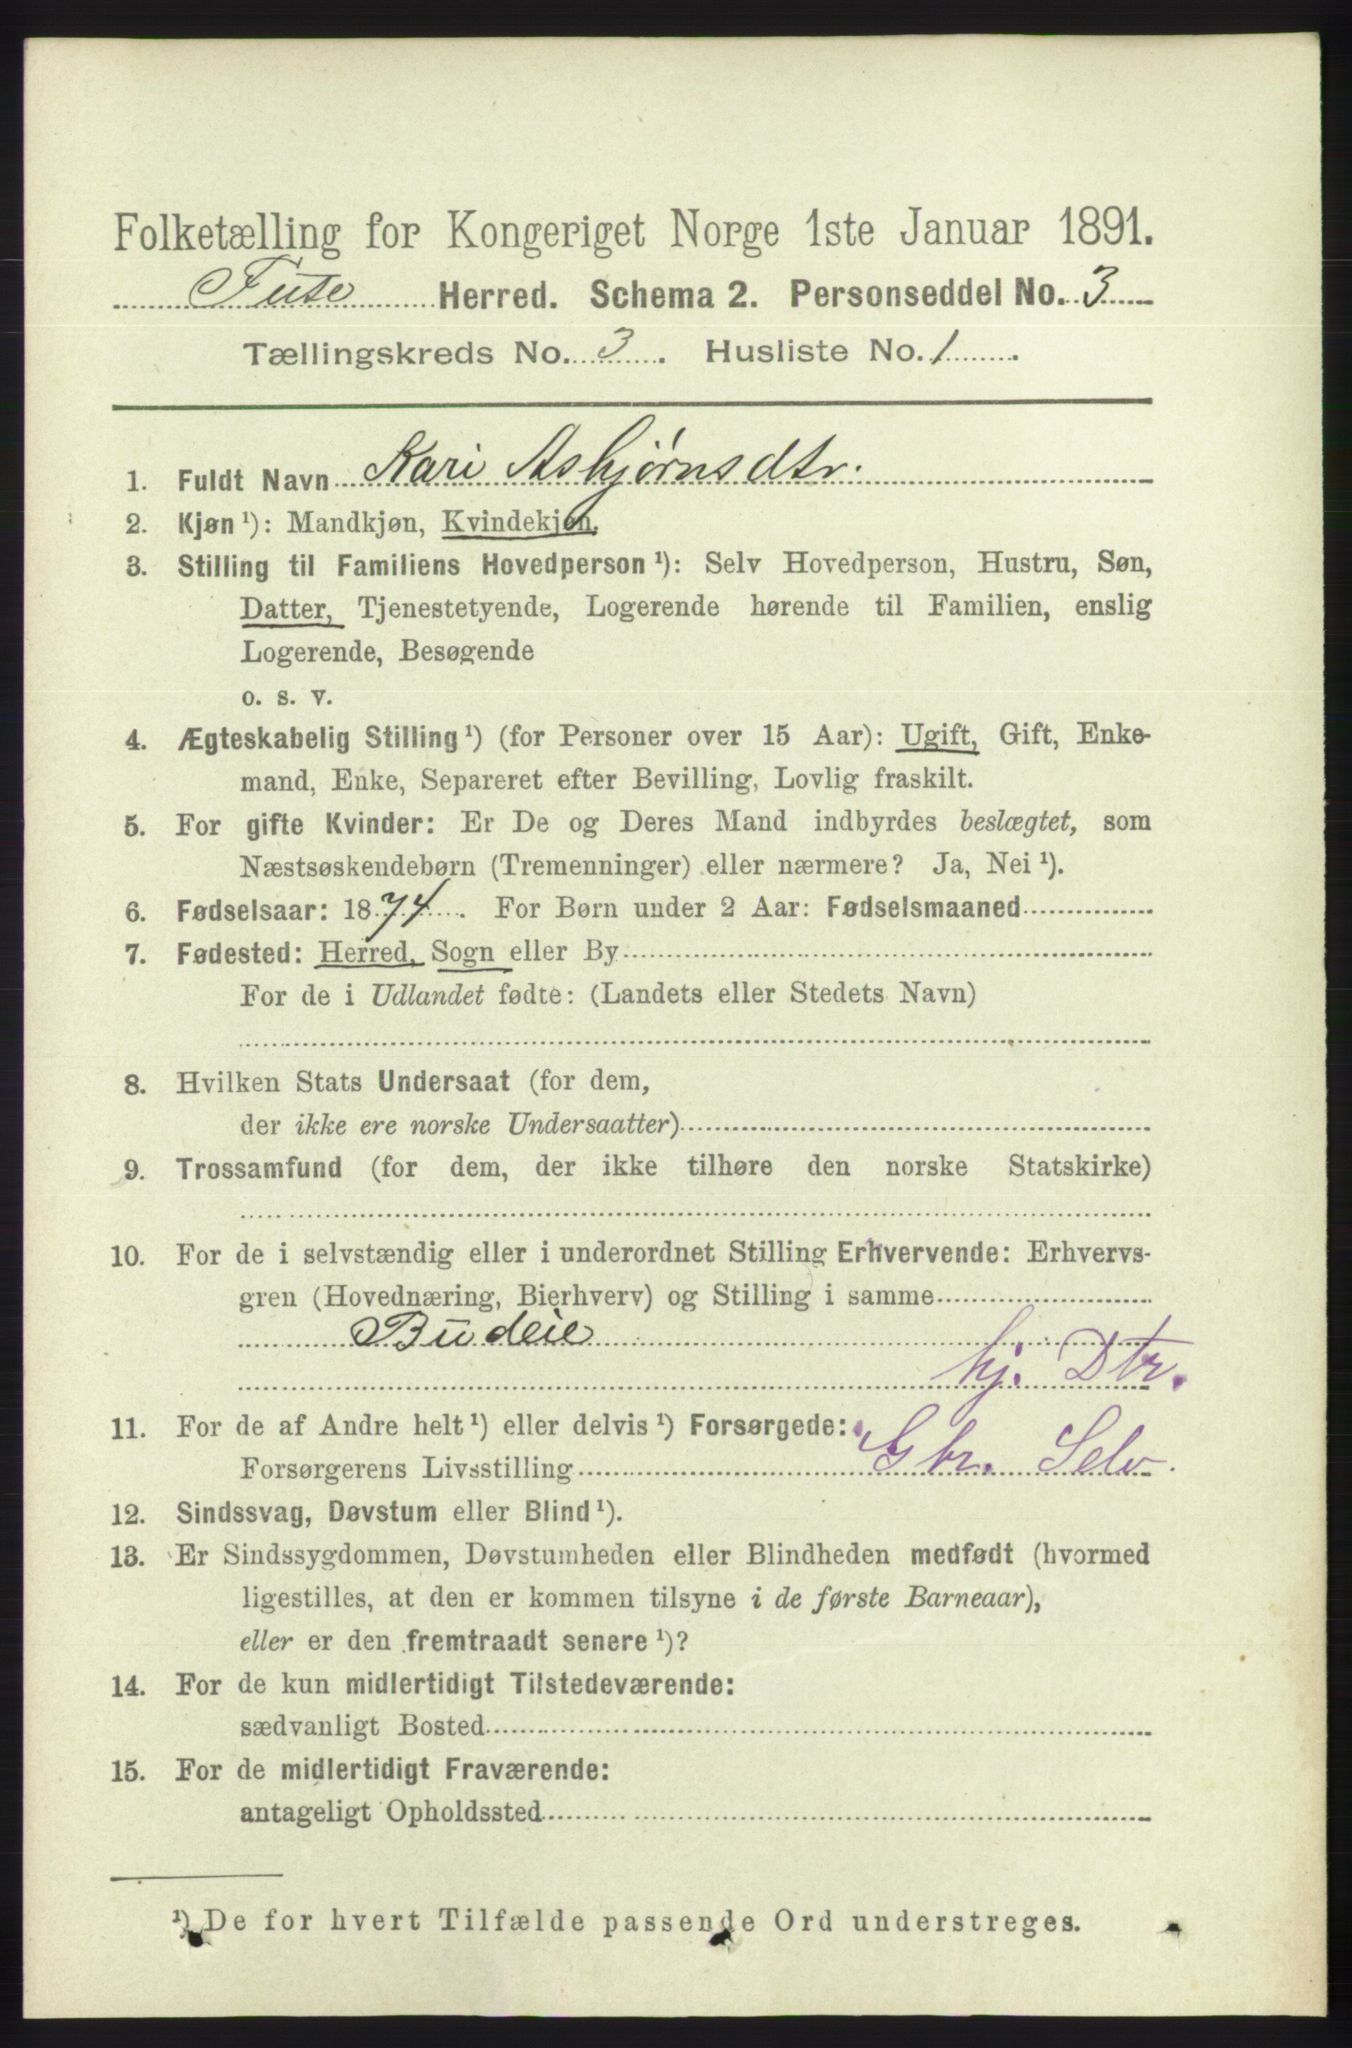 Folketælling for Kongeriget Norge 1ste Januar 1891.
Fuse Herred. Schema 2. Personseddel No. 3
Tællingskreds No. 3. Husliste No. 1.
1. Fuldt Navn Kari Asbjørnsdtr.
2. Kjøn ¹): Mandkjøn, Kvindekjøn.
3. Stilling til Familiens Hovedperson ¹): Selv Hovedperson, Hustru, Søn,
Datter, Tjenestetyende, Logerende hørende til Familien, enslig
Logerende, Besøgende
o. s. v.
4. Ægteskabelig Stilling ¹) (for Personer over 15 Aar): Ugift, Gift, Enke-
mand, Enke, Separeret efter Bevilling, Lovlig fraskilt.
5. For gifte Kvinder: Er De og Deres Mand indbyrdes beslægtet, som
Næstsøskendebørn (Tremenninger) eller nærmere? Ja, Nei ¹).
6. Fødselsaar: 1874. For Børn under 2 Aar: Fødselsmaaned
7. Fødested: Herred, Sogn eller By
For de i Udlandet fødte: (Landets eller Stedets Navn)
8. Hvilken Stats Undersaat (for dem,
der ikke ere norske Undersaatter)
9. Trossamfund (for dem, der ikke tilhøre den norske Statskirke)
10. For de i selvstændig eller i underordnet Stilling Erhvervende: Erhvervs-
gren (Hovednæring, Bierhverv) og Stilling i samme
Budeie
hj. Dtr.
11. For de af Andre helt ¹) eller delvis ¹) Forsørgede:
Forsørgerens Livsstilling Gbr. Selv.
12. Sindssvag, Døvstum eller Blind ¹).
13. Er Sindssygdommen, Døvstumheden eller Blindheden medfødt (hvormed
ligestilles, at den er kommen tilsyne i de første Barneaar),
eller er den fremtraadt senere ¹)?
14. For de kun midlertidigt Tilstedeværende:
sædvanligt Bosted
15. For de midlertidigt Fraværende:
antageligt Opholdssted
¹) De for hvert Tilfælde passende Ord understreges.